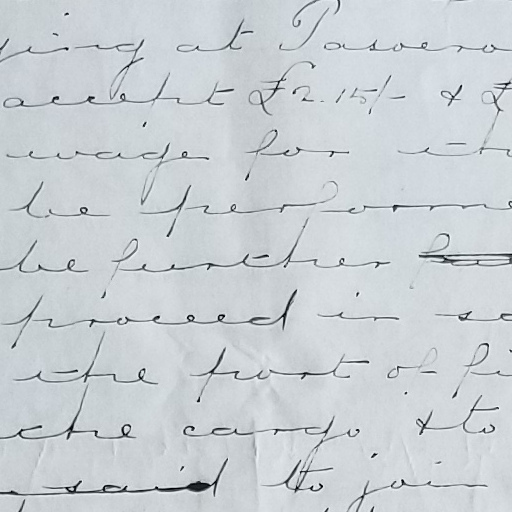 ying at Pasoero
accept £2.15/- & £
wage for the
be performe
be further
proceed in sa
the port of fi
the cargo & to
said to join